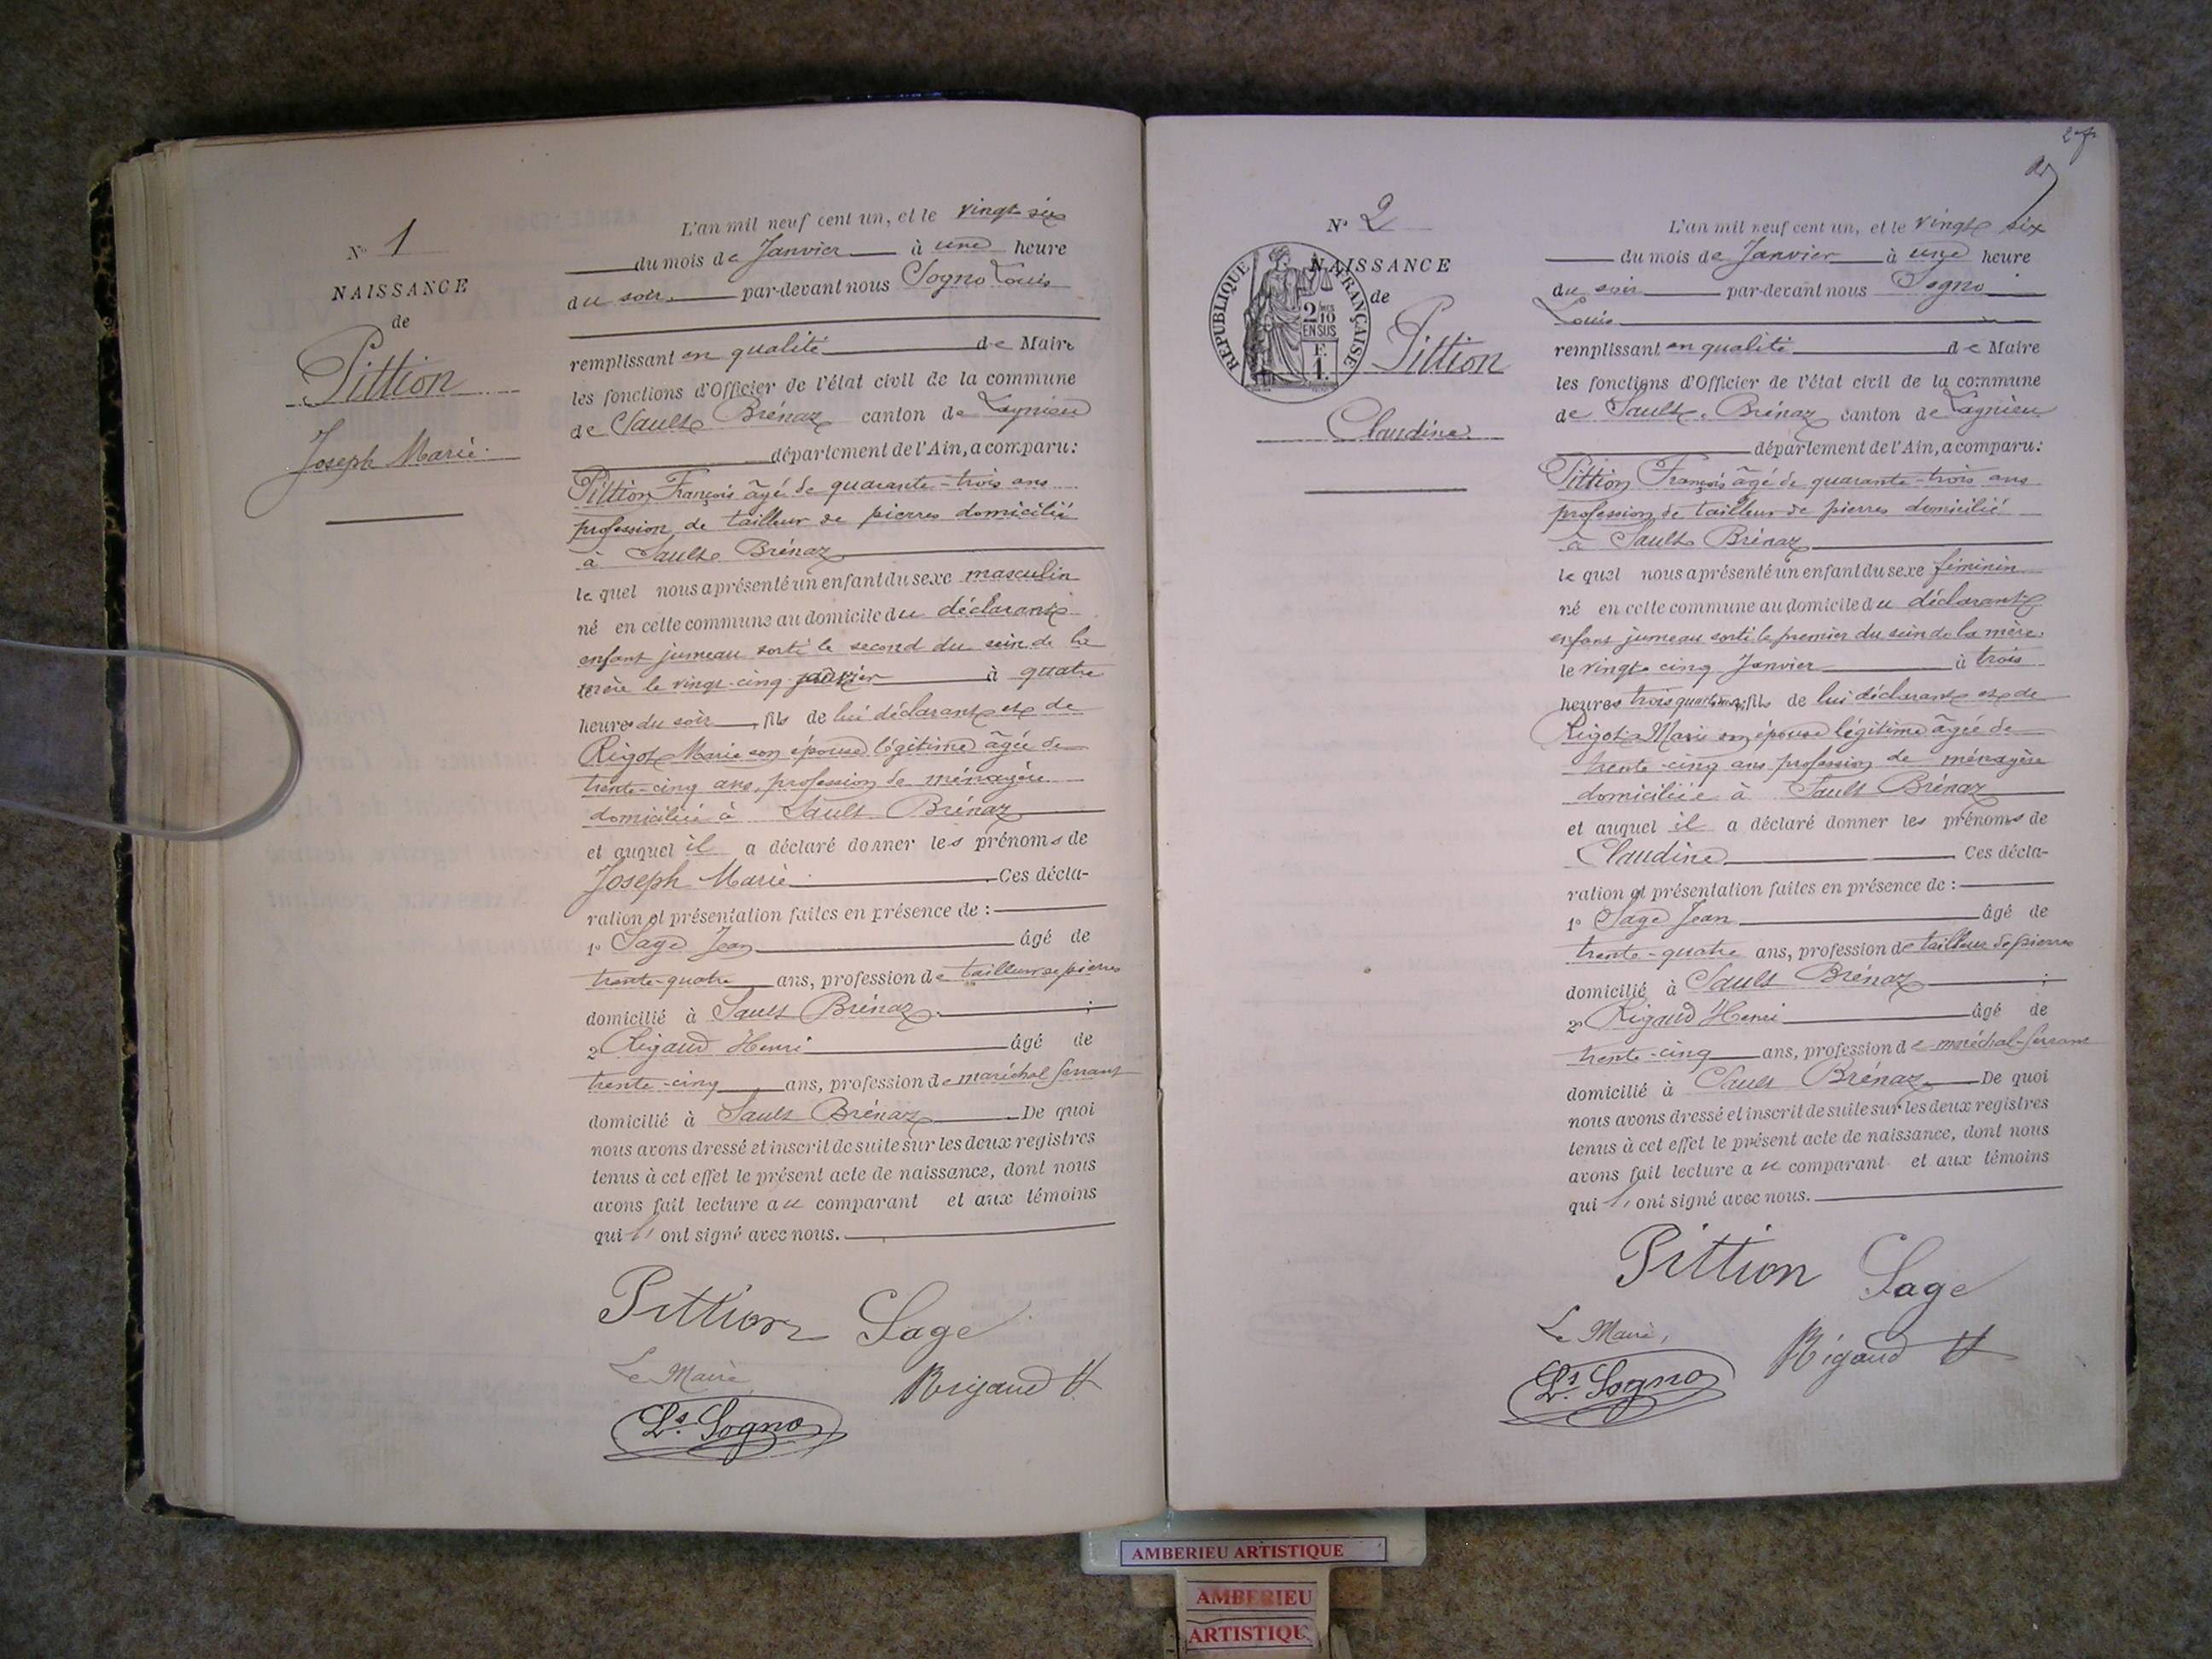 N° 1
NAISSANCE
de
Pittion
Joseph Marie.
L'an mil neuf cent un, et le vingt six
du mois de Janvier à une heure
du soir par-devant nous Sogno Louis
remplissant en qualité de Maire
les fonctions d'Officier de l'état civil de la commune
de Sault Brénaz canton de Lagnieu
département de l'Ain, a comparu:
Pittion François âgé de quarante-trois ans
profession de tailleur de pierres domicilié
à Sault Brénaz
lequel nous a présenté un enfant du sexe masculin
né en cette commune au domicile du déclarant
enfant jumeau sorti le second du sein de la
mère le vingt-cinq janvier à quatre
heures du soir, fils de lui déclarant et de
Rigot Marie son épouse légitime âgée de
trente-cinq ans, profession de ménagère
domiciliée à Sault Brénaz
et auquel il a déclaré donner les prénoms de
Joseph Marie Ces décla-
ration et présentation faites en présence de :
1° Sage Jean âgé de
trente-quatre ans, profession de tailleur de pierres
domicilié à Sault Brénaz ;
2° Rigaud Henri âgé de
trente-cinq ans, profession de maréchal ferrant
domicilié à Sault Brénaz De quoi
nous avons dressé et inscrit de suite sur les deux registres
tenus à cet effet le présent acte de naissance, dont nous
avons fait lecture au comparant et aux témoins
qui ont signé avec nous.
Pittion Sage
Le Maire Rigaud H
Ls. Sogno
N° 2
NAISSANCE
de
Pittion
Claudine
RÉPUBLIQUE FRANÇAISE
2 10
EN SUS
F.
1.
L'an mil neuf cent un, et le vingt six
du mois de Janvier à une heure
du soir par-devant nous Sogno
Louis
remplissant en qualité de Maire
les fonctions d'Officier de l'état civil de la commune
de Sault-Brénaz canton de Lagnieu
département de l'Ain, a comparu:
Pittion François âgé de quarante-trois ans
profession de tailleur de pierres domicilié
à Sault Brénaz
lequel nous a présenté un enfant du sexe féminin
né en cette commune au domicile du déclarant
enfant jumeau sorti le premier du sein de la mère
le vingt-cinq Janvier à trois
heures trois quarts fils de lui déclarant et de
Rigot Marie son épouse légitime âgée de
trente-cinq ans profession de ménagère
domiciliée à Sault Brénaz
et auquel il a déclaré donner les prénoms de
Claudine Ces décla-
ration et présentation faites en présence de :
1° Sage Jean âgé de
trente-quatre ans, profession de tailleur de pierres
domicilié à Sault Brénaz ;
2° Rigaud Henri âgé de
trente-cinq ans, profession de maréchal-ferrant
domicilié à Sault Brénaz De quoi
nous avons dressé et inscrit de suite sur les deux registres
tenus à cet effet le présent acte de naissance, dont nous
avons fait lecture au comparant et aux témoins
qui ont signé avec nous.
Pittion Sage
Le Maire, Rigaud H
Ls. Sogno
AMBERIEU ARTISTIQUE
AMBERIEU
ARTISTIQUE